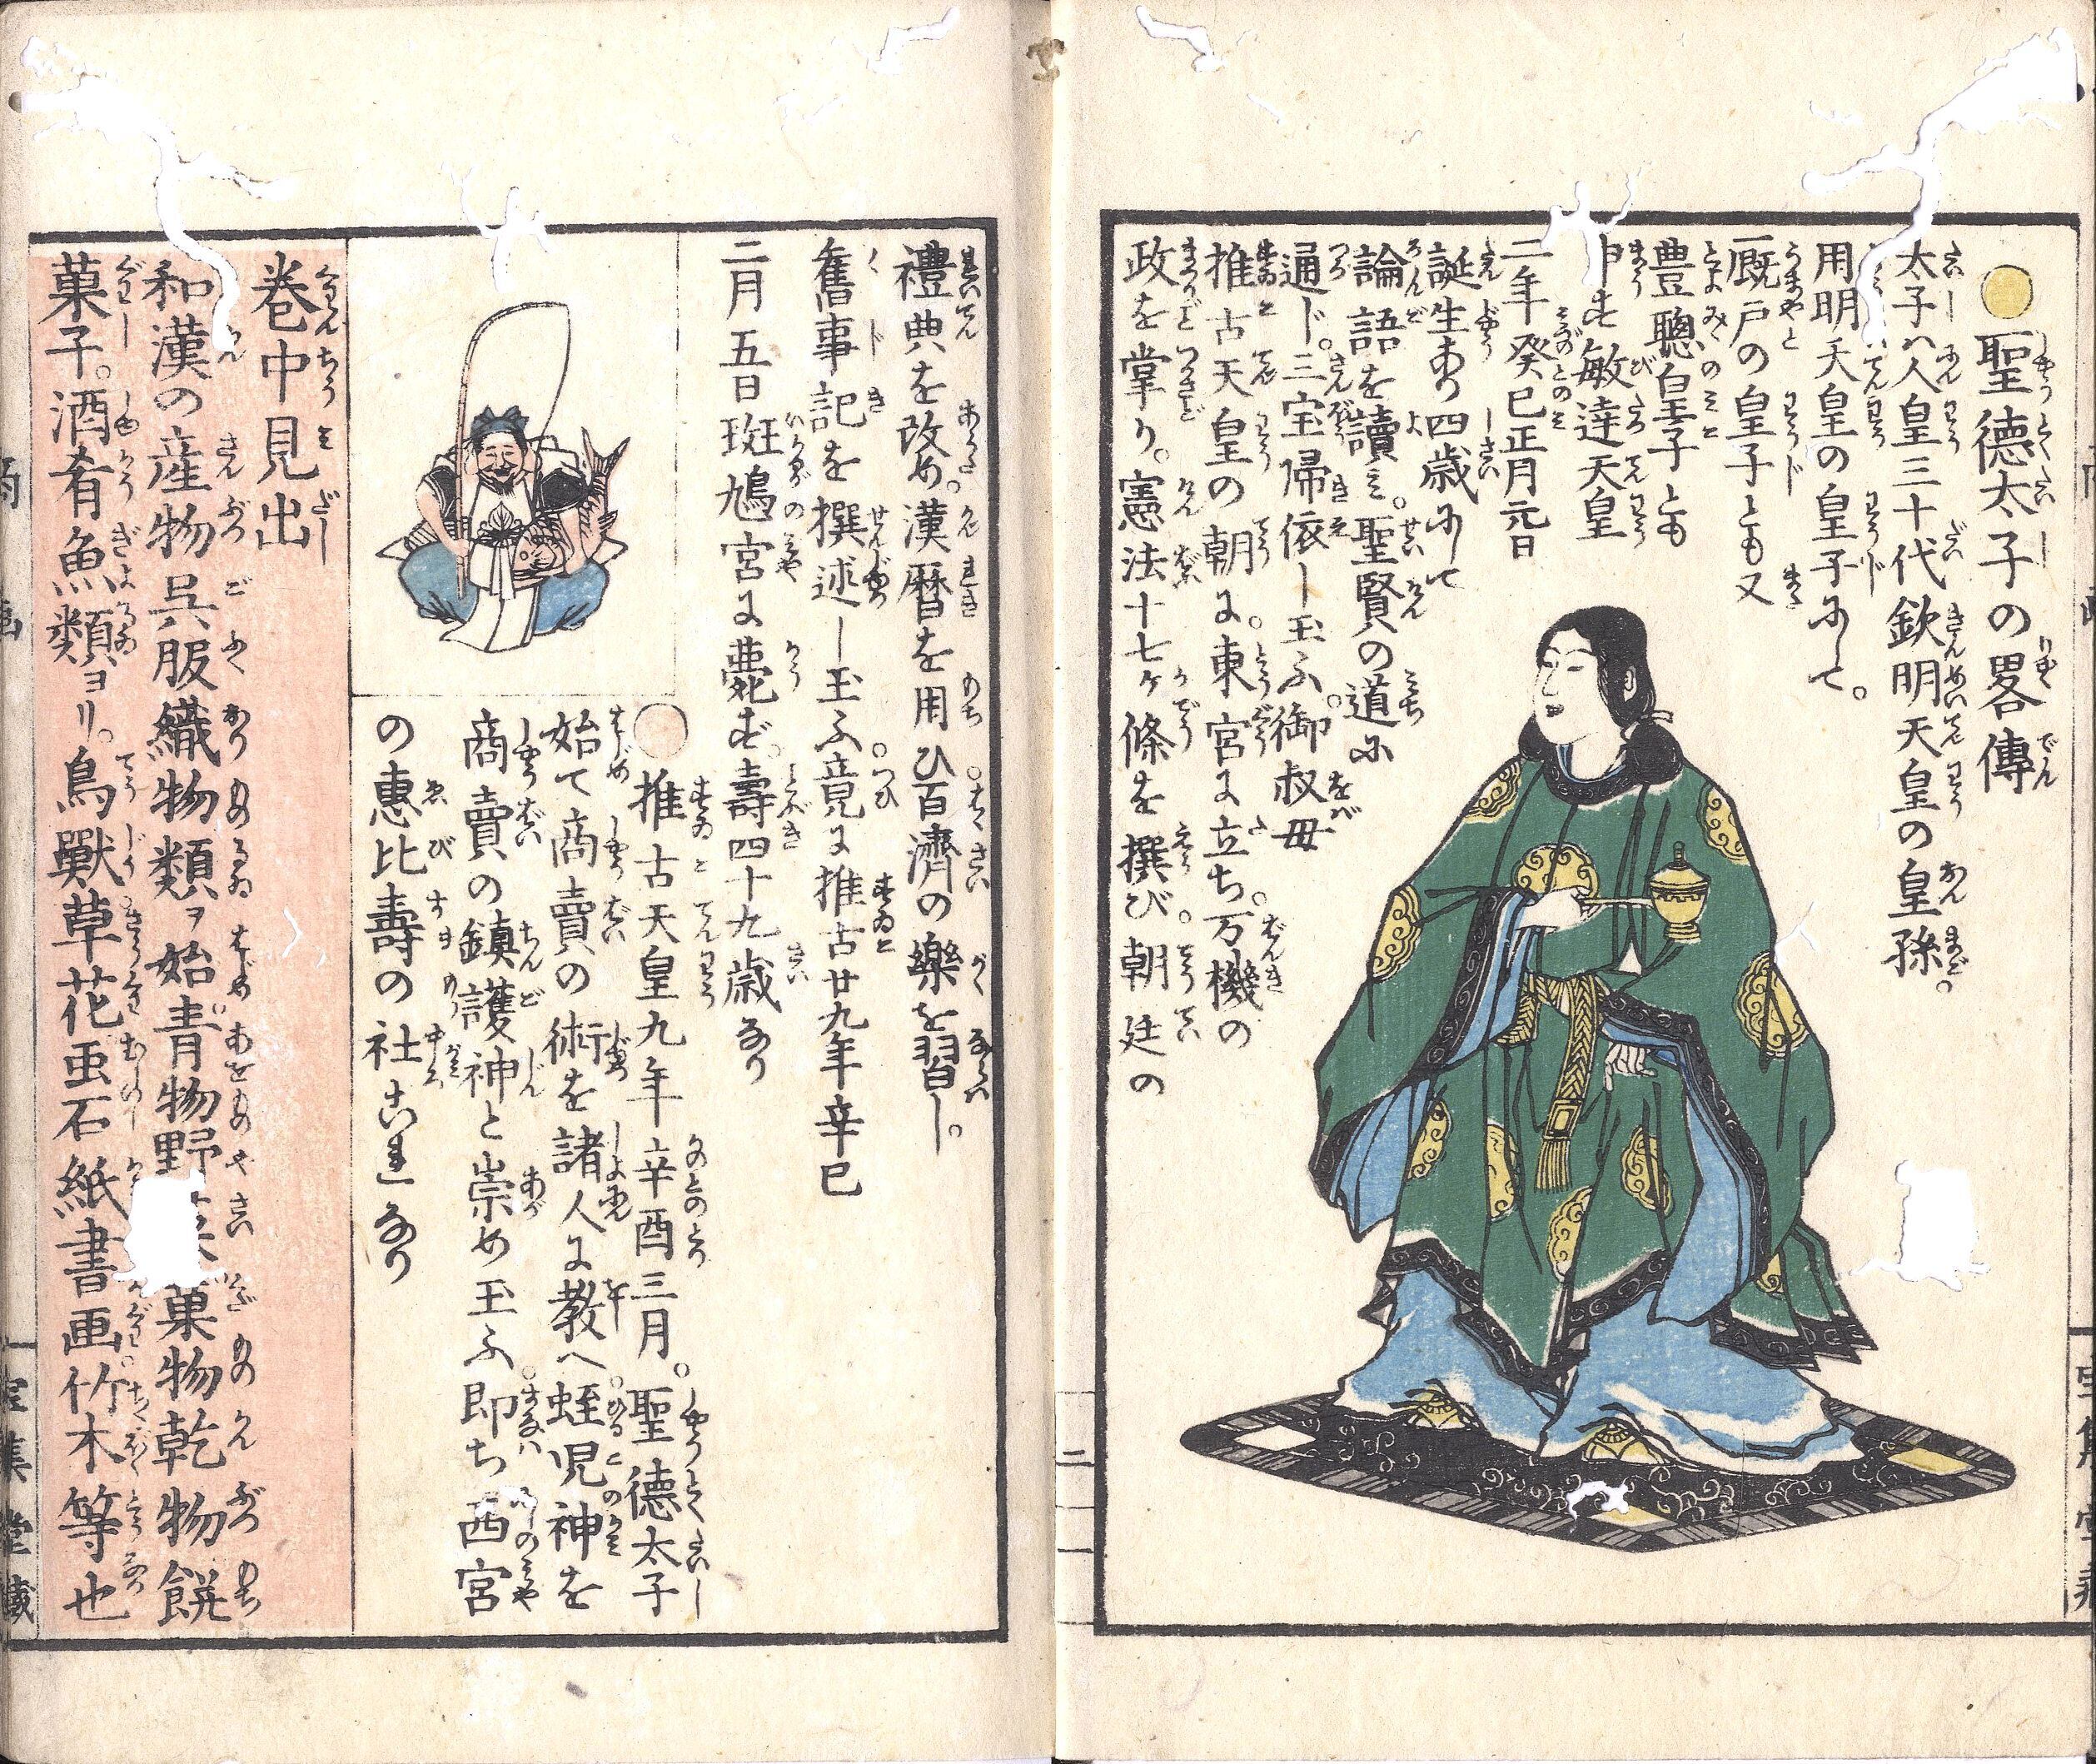 聖徳太子の畧傳
太子ハ人皇三十代欽明天皇の皇孫。
用明天皇の皇子にして。
厩戸の皇子とも又
豊聰皇子とも
申す敏達天皇
二年癸巳正月元日
誕生あり四歳にして
論語を讀ミ。聖賢の道に
通ド。三宝帰依し玉ふ。御叔母
推古天皇の朝に。東宮に立ち。万機の
政を掌り。憲法十七ケ條を撰び。朝廷の
禮典を改め。漢暦を用ひ。百濟の樂を習し。
舊事記を撰述し玉ふ。竟に推古廿九年辛巳
二月五日斑鳩宮に薨ず。壽四十九歳なり
推古天皇九年辛酉三月。聖徳太子
始て商賣の術を諸人に教へ。蛭児神を
商賣の鎮護神と崇め玉ふ。即ち西宮
の惠比壽の社これなり
巻中見出
和漢の産物呉服織物類ヲ始青物野菜菓物乾物餅
菓子。酒肴魚類ヨリ。鳥獸草花虫石紙書画竹木等也